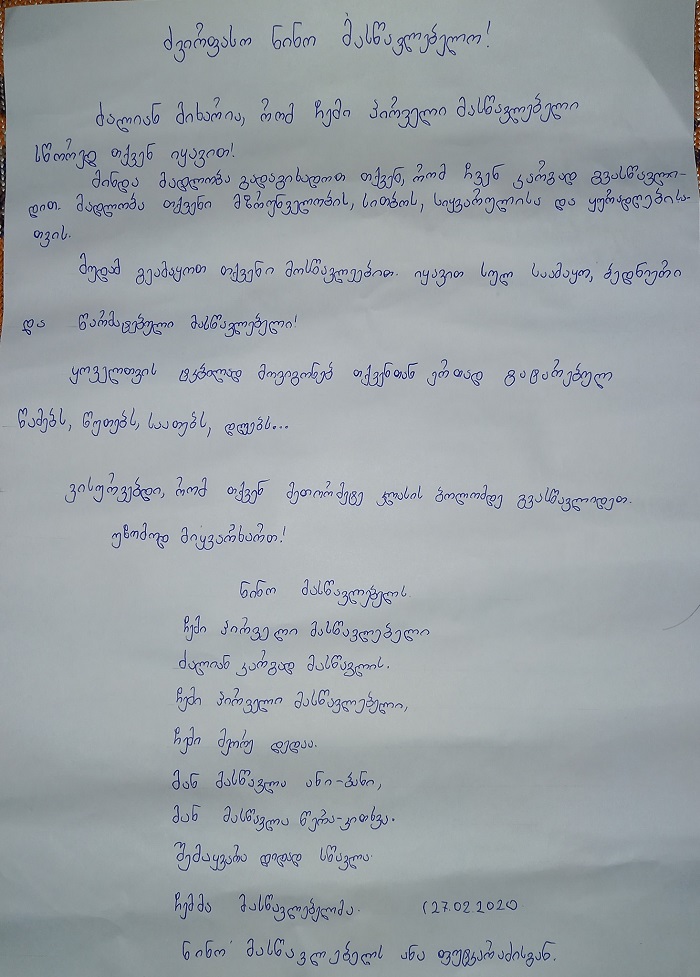 ძვირფასო ნინო მასწავლებელო!
ძალიან მიხარია, რომ ჩემი პირველი მასწავლებელი
სწორედ თქვენ იყავით!
მინდა მადლობა გადაგიხადოთ თქვენ, რომ ჩვენ კარგად გვასწავლი-
დით. მადლობა თქვენი მზრუნველობის, სითბოს, სიყვარულისა და ყურადღებისა-
თვის.
მუდამ გეამაყოთ თქვენი მოსწავლეებით. იყავით სულ საამაყო, ბედნიერი
და წარმატებული მასწავლებელი!
ყოველთვის ტკბილად მოვიგონებ თქვენთან ერთად გატარებულ
წამებს, წუთებს, საათებს, დღეებს...
ვისურვებდი, რომ თქვენ მეთორმეტე კლასის ბოლომდე გვასწავლიდეთ.
უზომოდ მიყვარხართ!
ნინო მასწავლებელს
ჩემი პირველი მასწავლებელი
ძალიან კარგად მასწავლის.
ჩემი პირველი მასწავლებელი,
ჩემი მეორე დედაა.
მან მასწავლა ანი-ბანი,
მან მასწავლა წერა-კითხვა.
შემაყვარა დიდად სწავლა
ჩემმა მასწავლებელმა. (27.02.202
ნინო მასწავლებელს ანა ფუტკარაძისგან.